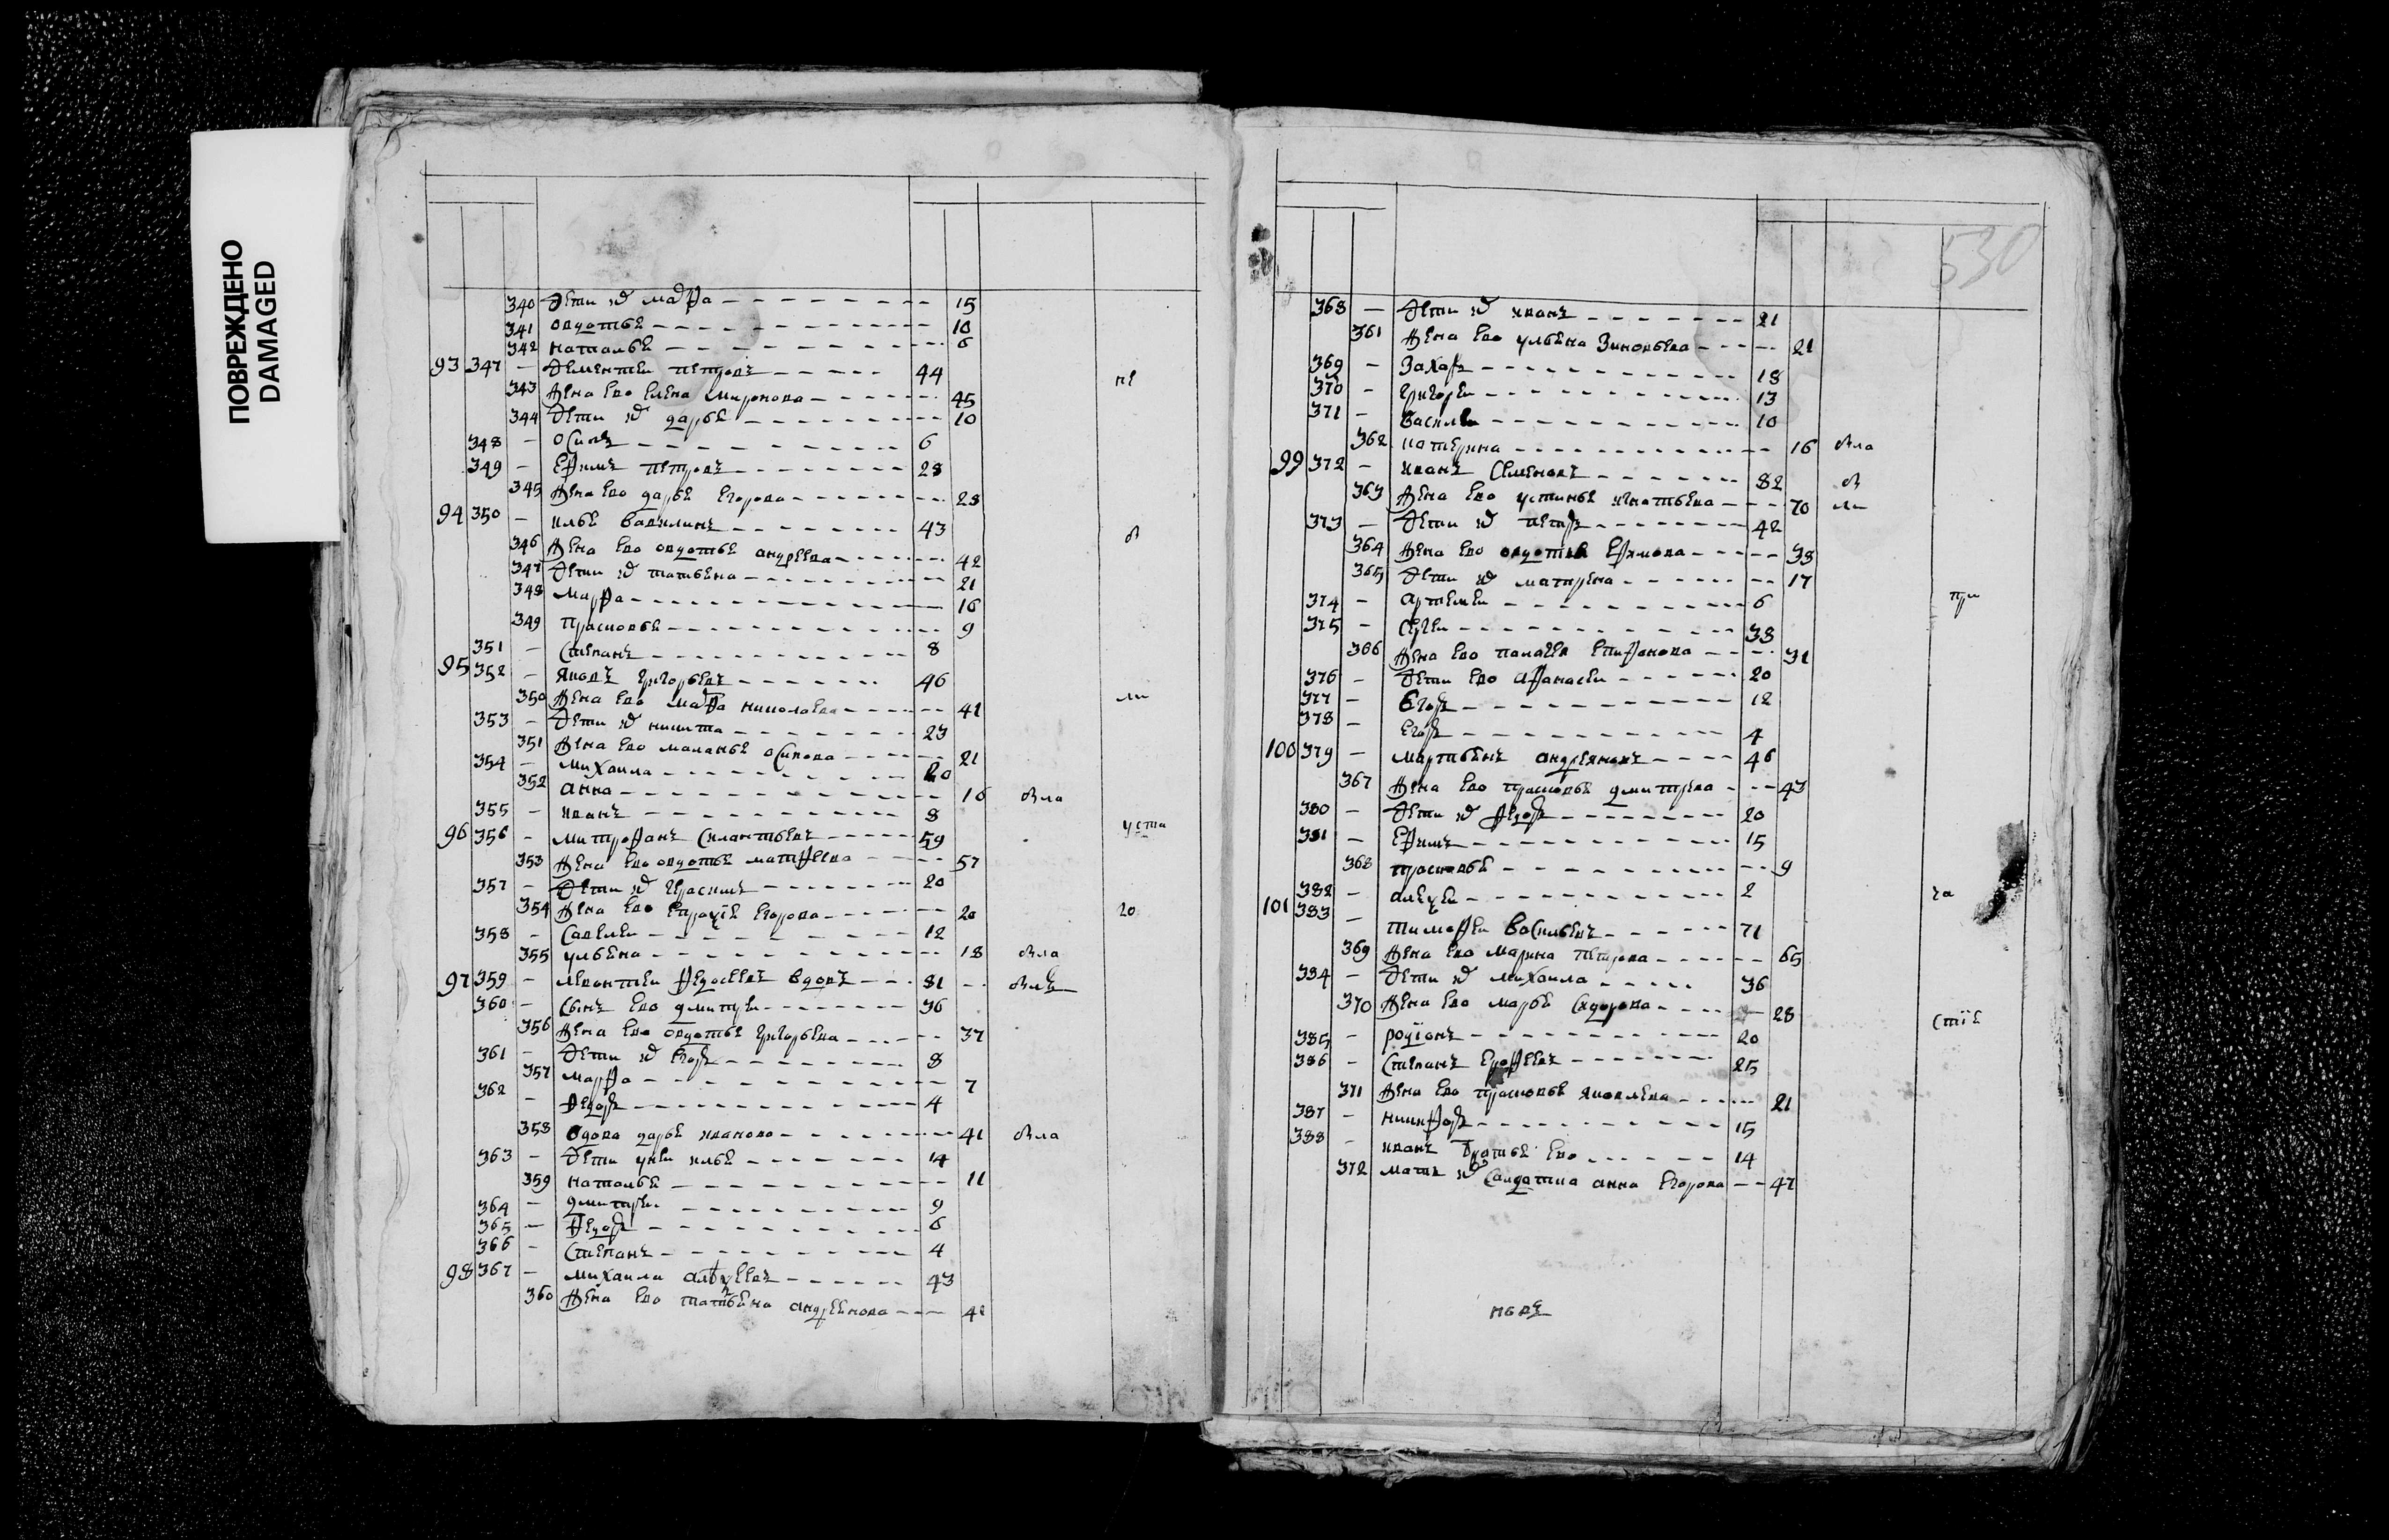 ПОВРЕЖДЕНО
DAMAGED
340 дети их марфа 15
341 овдотья 10
342 наталья 6
93 347 — дементеи петровъ 44 не
343 жена ево елена миронова 45
344 дети их дарья 10
348 — осипъ 6
349 — ефимъ петровъ 28
345 жена ево дарья егорова 28
94 350 — илья вавилинъ 43 в
346 жена ево овдотья андреева 42
347 дети их татьяна 21
348 марфа 16
349 прасковья 9
351 — степанъ 8
95 352 — яковъ григорьевъ 46
350 жена ево марфа николаева 41 ли
353 — дети их никита 23
351 жена ево маланья осипова 21
354 — михаила 20
352 анна 16 вла
355 — иванъ 8
96 356 — митрофанъ силантьевъ 59 уста
353 жена ево овдотья матфеева 57
357 — дети их герасимъ 20
354 жена ево егорова 20 го
358 — савелеи 12
355 ульяна 18 вла
97 359 — леонтеи федосеевъ вдовъ 81
360 — сынъ ево дмитреи 36
356 жена ево овдотья григорьева 37
361 — дети их егоръ 8
357 марфа 7
362 — федоръ 4
358 вдова дарья иванова 41 вла
363 — дети у неи илья 14
359 наталья 11
364 — дмитреи 9
365 — федоръ 6
366 — степанъ 4
98 367 — михаила алексеевъ 43
360 жена ево татьяна андреянова 41
530
368 — дети их иванъ 21
361 жена ево ульяна зиновьева 21
369 — захаръ 18
370 — григореи 13
371 — василеи 10
362 катерина 16 вла
99 372 — иванъ семеновъ 82 в
363 жена ево устинья игнатьева 70 ли
373 — дети их петръ 42
364 жена ево овдотья ефимова 38
365 дети их матрена 17
374 — артемеи 6 при
375 — сергеи 38
366 жена ево палагея епифанова 31
376 — дети ево афанасеи 20
377 — егоръ 12
378 — егоръ 4
100 379 — мартьянъ андреяновъ 46
367 жена ево прасковья дмитрева 43
380 — дети их федоръ 20
381 — ефимъ 15
368 прасковья 9
382 — алексеи 2 га
101 383 — тимофеи васильевъ 71
369 жена ево марина петрова 65
384 — дети их михаила 36
370 жена ево марья сидорова 28
385 — родiонъ 20 стiя
386 — степанъ ерофеевъ 25
371 жена ево прасковья яковлева 21
387 — никифоръ 15
388 — иванъ братья ево 14
372 мать их салдатка анна егорова 47